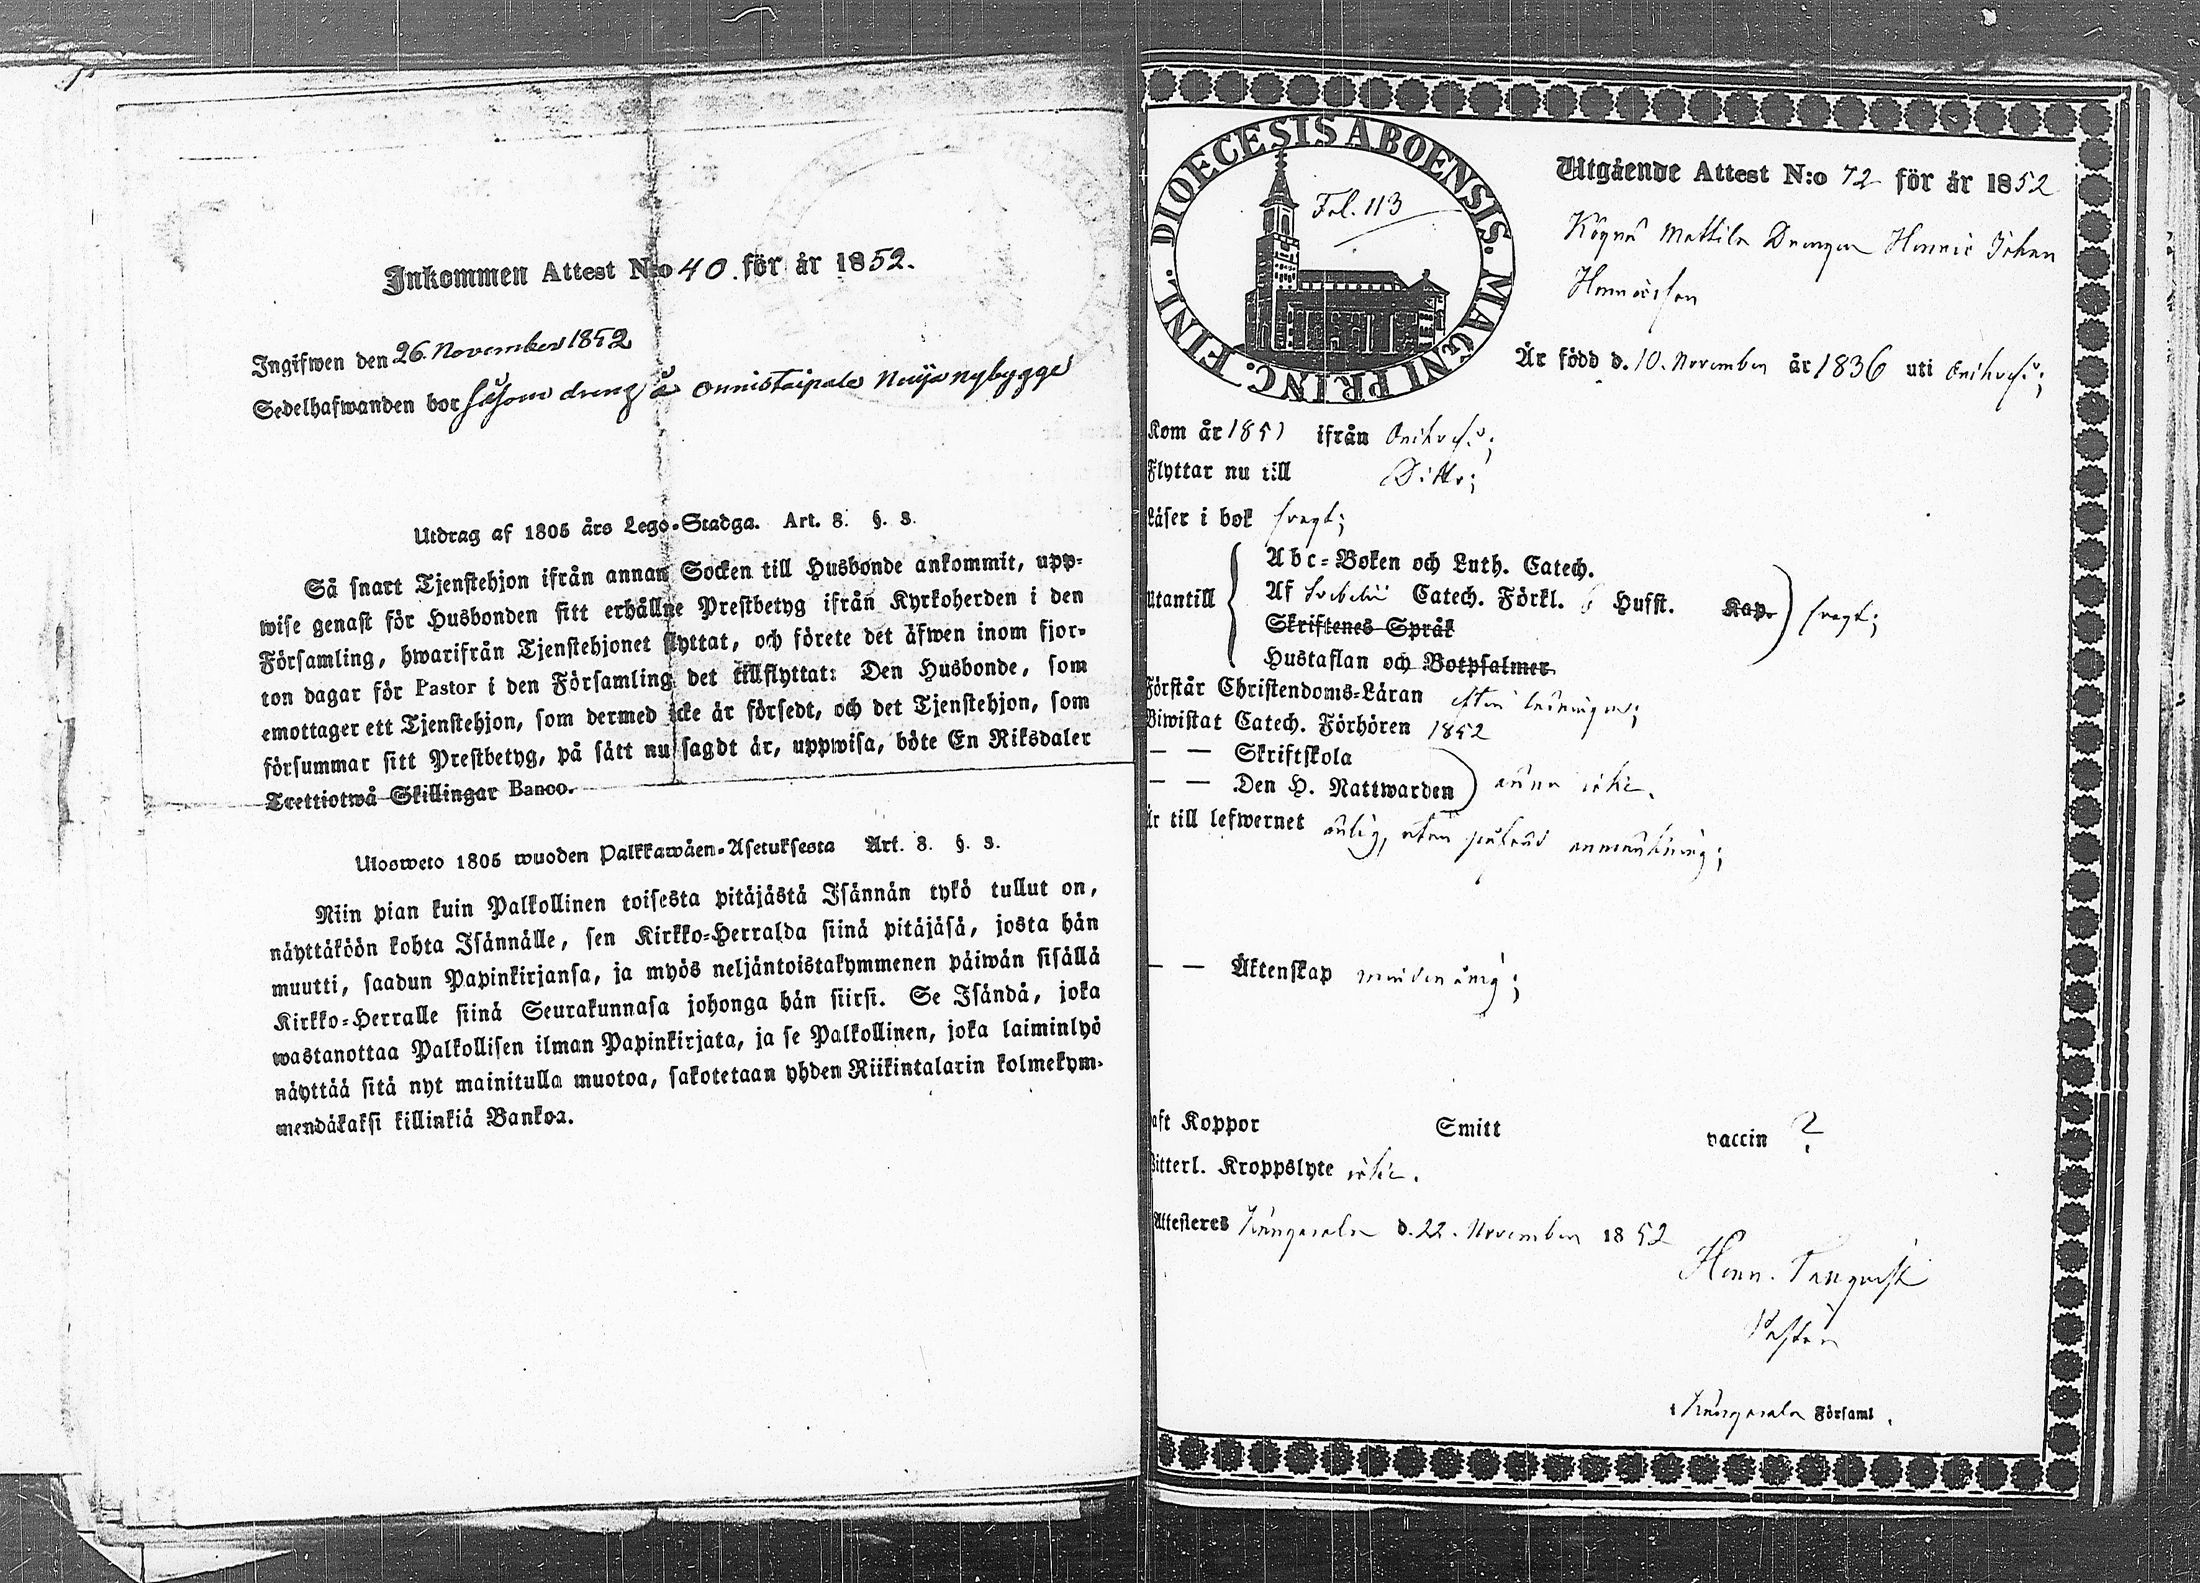 Inkommen Attest N:o 40. för år 1852.
Ingifwen den 26. November 1852
Sedelhafwanden bor såsom dreng å Onnistaipale Neuja nybygge
Utdrag af 1805 års Lego-Stadga. Art. 8. §. 3.
Så snart Tjenstehjon ifrån annan Socken till Husbonde ankommit, upp-
wise genast för Husbonden sitt erhållne Prestbetyg ifrån Kyrkoherden i den
Församling, hwarifrån Tjenstehjonet flyttat, och förete det äfwen inom fjor-
ton dagar för Pastor i den Församling det tillflyttat: Den Husbonde, som
emottager ett Tjenstehjon, som dermed icke är försedt, och det Tjenstehjon, som
försummar sitt Prestbetyg, på sätt nu sagdt är, uppwisa, böte En Riksdaler
Trettiotwå Skillingar Banco.
Ulosweto 1805 wuoden Palkkawäen-Asetuksesta Art. 8. §. 3.
Niin pian kuin Palkollinen toisesta pitäjästä Isännän tykö tullut on,
näyttäköön kohta Isännälle, sen Kirkko-Herralda siinä pitäjäsä, josta hän
muutti, saadun Papinkirjansa, ja myös neljäntoistakymmenen päiwän sisällä
Kirkko-Herralle siinä Seurakunnasa johonga hän siirsi. Se Isändä, joka
wastanottaa Palkollisen ilman Papinkirjata, ja se Palkollinen, joka laiminlyö
näyttää sitä nyt mainitulla muotoa, sakotetaan yhden Riikintalarin kolmekym-
mendäkaksi killinkiä Bankoa.
DIOECESIS ABOENSIS. MAGNI PRINC. FINL.
Fol. 113
Utgående Attest N:o 72 för år 1852
Mattila Drengen Henric Johan
Henricsson
Är född d. 10. November år 1836 uti Orihvesi;
Kom år 1851 ifrån Orihvesi;
Flyttar nu till Ditto;
Läser i bok svagt;
Utantill
Abc-Boken och Luth. Catech.
Af Svebelii Catech. Förkl. Hufst. Kap.
Skriftenes Språk
Hustaflan och Botpsalmer
svagt;
Förstår Christendoms-Läran efter ledningen;
Biwistat Catech. Förhören 1852
— — Skriftskola
— — Den H. Nattwarden
ännu icke.
Är till lefwernet ärlig, utan påkänd anmärkning;
— — Äktenskap minderårig;
haft Koppor Smitt vaccin ?
Witterl. Kroppslyte icke.
Attesteres Kangasala d. 22. November 1852
Henr. Tanqvist
Pastor
i Kangasala Församl.